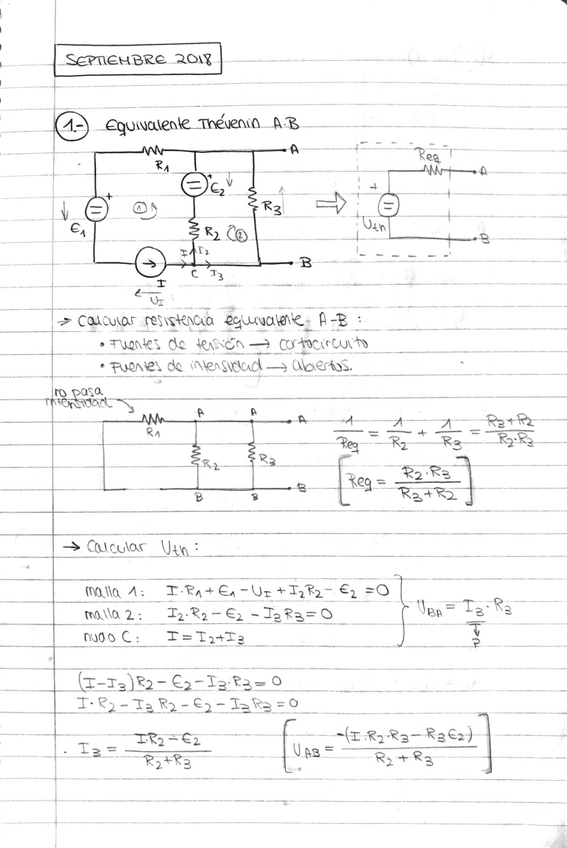 SEPTIEMBRE 2018
1.- Equivalente Thévenin A-B
R1
A
+
E2
R3
E1
1
R2
2
I
I2
C
I3
B
I
UI
Req
A
+
Uth
B
→ Calcular resistencia equivalente A-B:
• Fuentes de tensión → cortocircuito
• Fuentes de intensidad → abiertos.
no pasa
intensidad
R1
A
A
A
R2
R3
B
B
B
1/Req = 1/R2 + 1/R3 = R3+R2/R2·R3
[Req = R2·R3/R3+R2]
→ Calcular Uth:
malla 1: I·R1+E1-UI+I2R2-E2=0
malla 2: I2·R2-E2-I3R3=0
nudo C: I=I2+I3
UBA = I3·R3
?
(I-I3)R2-E2-I3·R3=0
I·R2-I3R2-E2-I3R3=0
· I3 = I·R2-E2/R2+R3
[UAB = -(I·R2·R3-R3E2)/R2+R3]